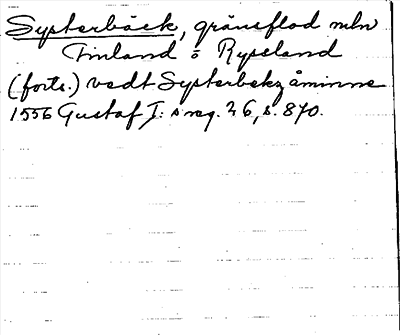 Systerbäck, gränsflod mln
Finland o Ryssland
(forts.) vedt Systerbekz åminne
1556 Gustaf I:s reg. 26, s. 870.